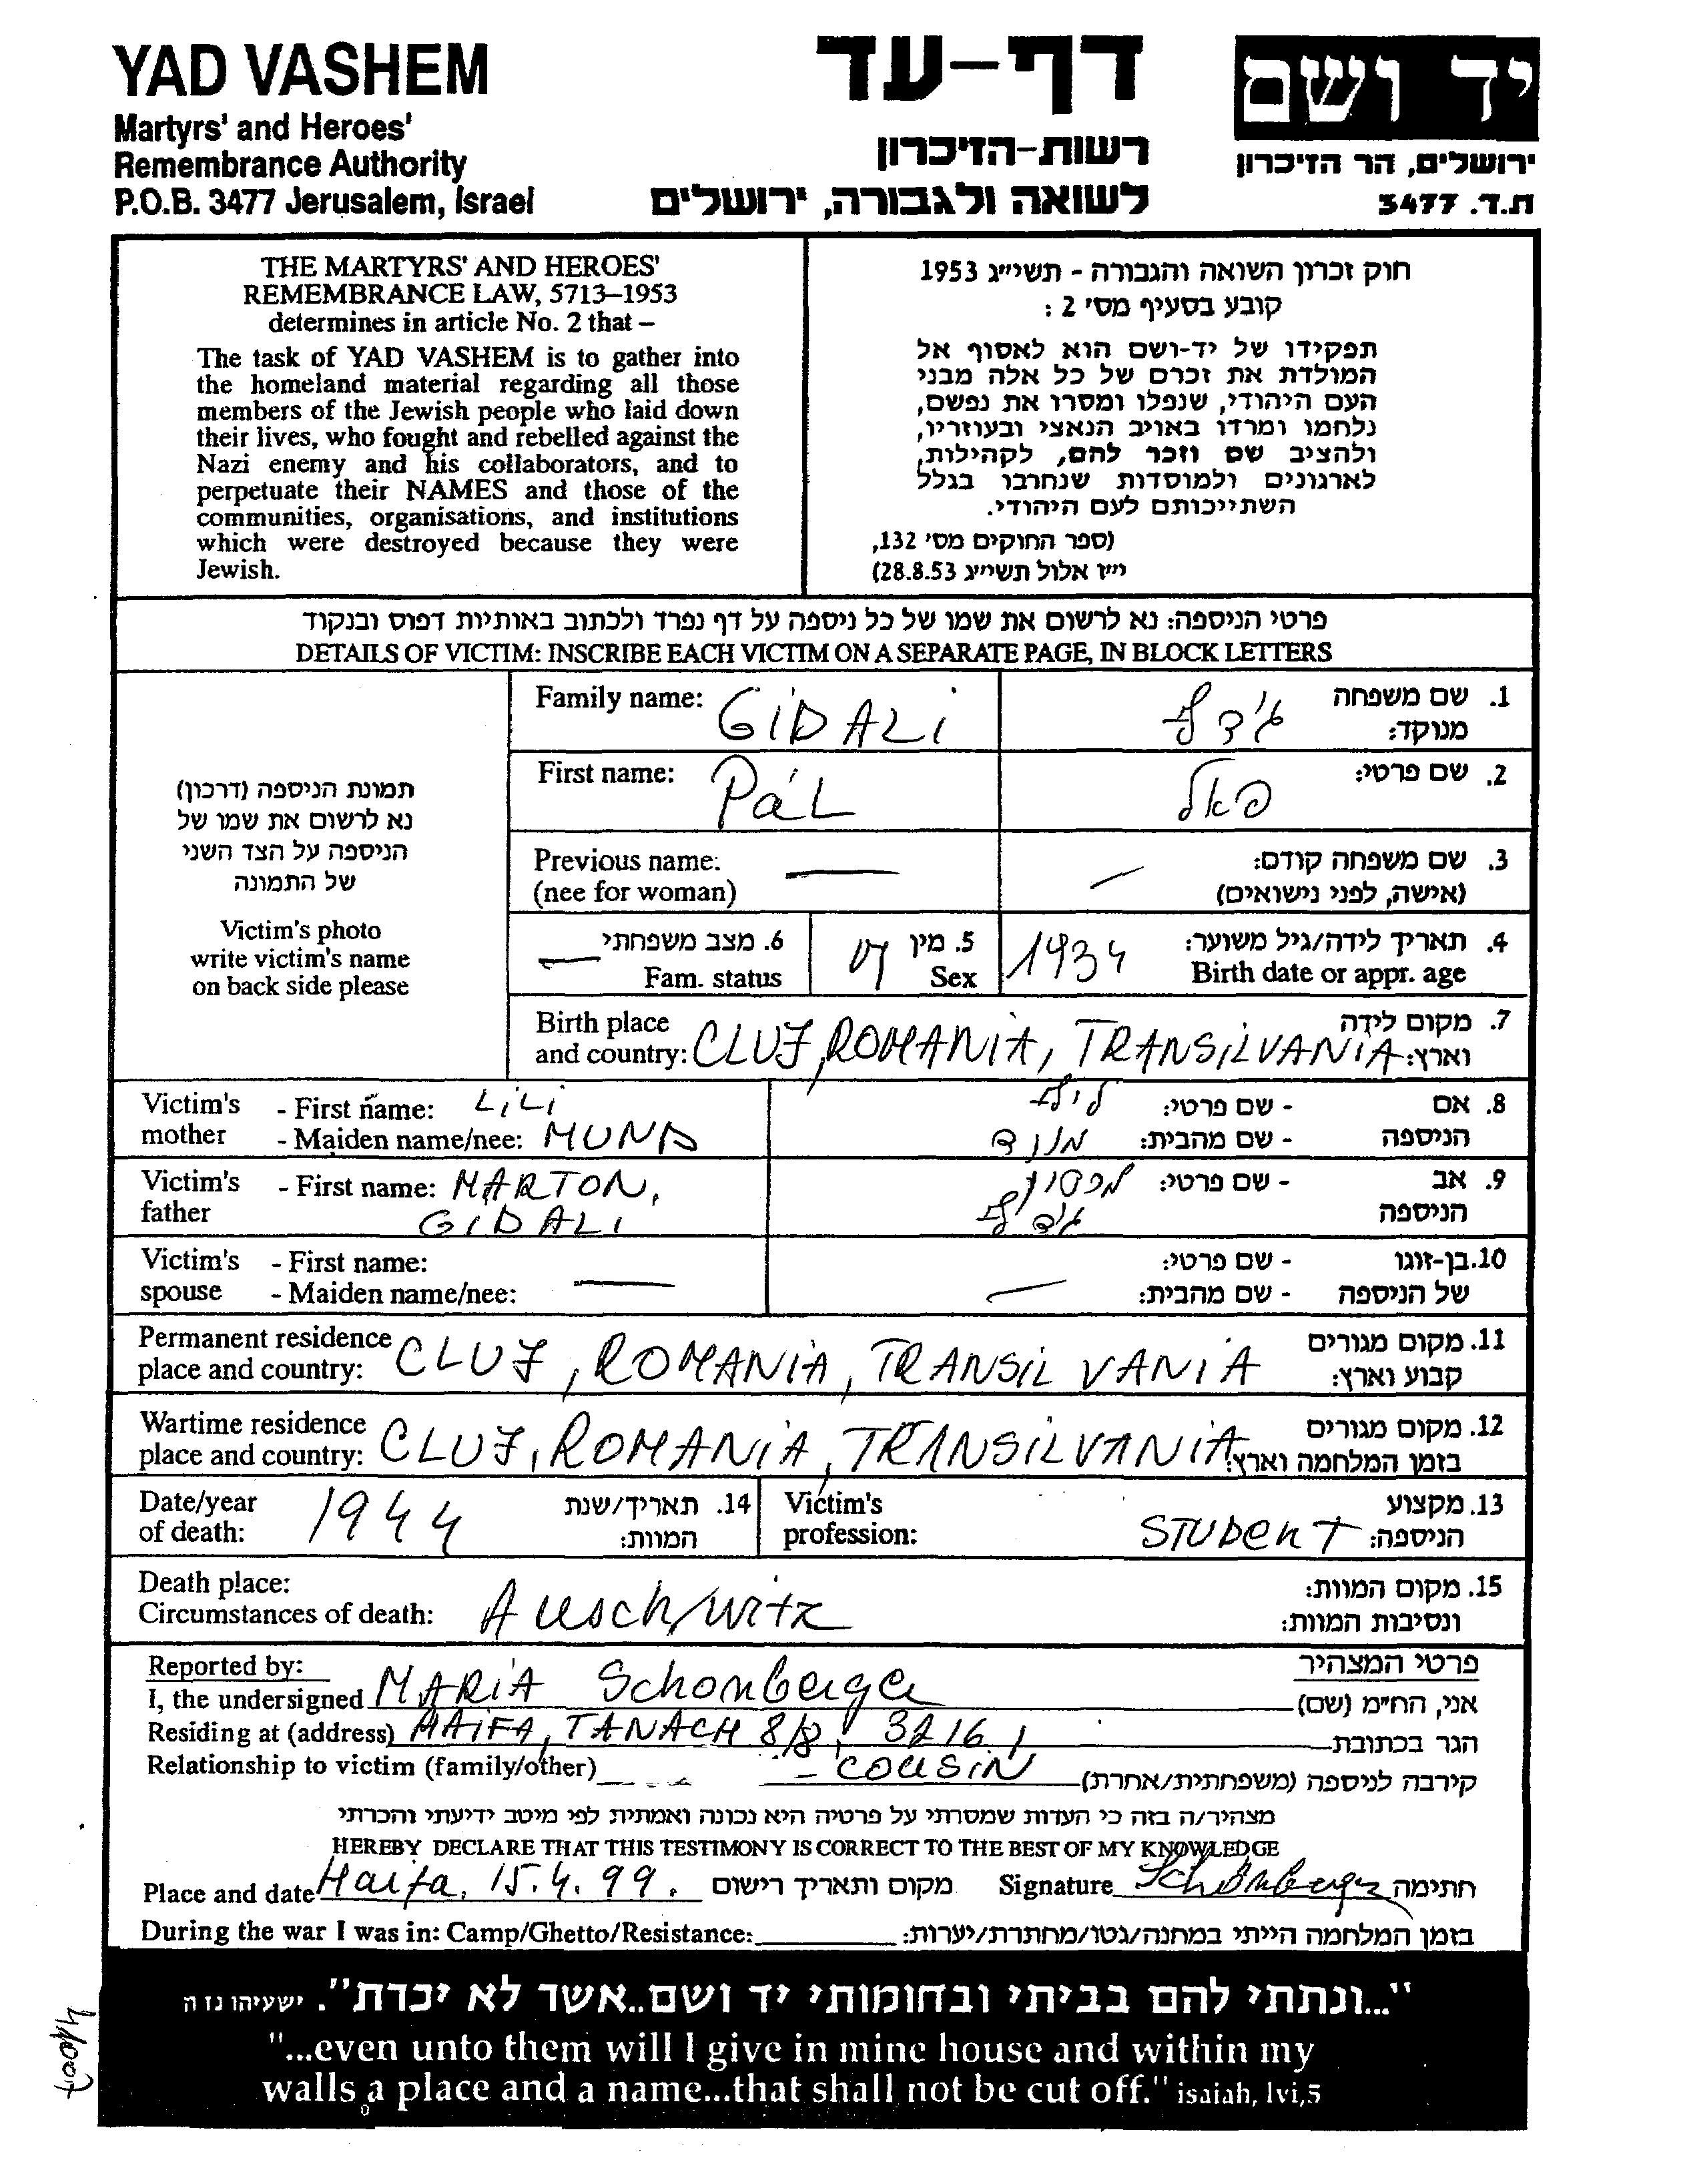 YAD VASHEM
Martyrs' and Heroes'
Remembrance Authority
P.O.B. 3477 Jerusalem, Israel
דף-עד
רשות-הזיכרון
לשואה ולגבורה, ירושלים
יד ושם
ירושלים, הר הזיכרון
ת.ד. 3477
THE MARTYRS' AND HEROES'
REMEMBRANCE LAW, 5713–1953
determines in article No. 2 that –
The task of YAD VASHEM is to gather into
the homeland material regarding all those
members of the Jewish people who laid down
their lives, who fought and rebelled against the
Nazi enemy and his collaborators, and to
perpetuate their NAMES and those of the
communities, organisations, and institutions
which were destroyed because they were
Jewish.
חוק זכרון השואה והגבורה - תשי״ג 1953
קובע בסעיף מס' 2 :
תפקידו של יד-ושם הוא לאסוף אל
המולדת את זכרם של כל אלה מבני
העם היהודי, שנפלו ומסרו את נפשם,
נלחמו ומרדו באויב הנאצי ובעוזריו,
ולהציב שם וזכר להם, לקהילות,
לארגונים ולמוסדות שנחרבו בגלל
השתייכותם לעם היהודי.
(ספר החוקים מס' 132,
י״ז אלול תשי״ג 28.8.53)
פרטי הניספה: נא לרשום את שמו של כל ניספה על דף נפרד ולכתוב באותיות דפוס ובנקוד
DETAILS OF VICTIM: INSCRIBE EACH VICTIM ON A SEPARATE PAGE, IN BLOCK LETTERS
תמונת הניספה (דרכון)
נא לרשום את שמו של
הניספה על הצד השני
של התמונה
Victim's photo
write victim's name
on back side please
Family name: GIDALI גידלי 1. שם משפחה
מנוקד:
First name: PáL פאל 2. שם פרטי:
Previous name: — — 3. שם משפחה קודם:
(nee for woman) (אישה, לפני נישואים)
— 6. מצב משפחתי 5. מין 1934 4. תאריך לידה/גיל משוער:
Fam. status Sex Birth date or appr. age
Birth place 7. מקום לידה
and country: CLUJ, ROMANIA, TRANSILVANIA וארץ:
Victim's - First name: LILI לילי - שם פרטי: 8. אם
mother - Maiden name/nee: MUND מונד - שם מהבית: הניספה
Victim's - First name: MARTON, - שם פרטי: 9. אב
father GIDALI גידלי הניספה
Victim's - First name: - שם פרטי: 10. בן-זוגו
spouse - Maiden name/nee: — — - שם מהבית: של הניספה
Permanent residence 11. מקום מגורים
place and country: CLUJ, ROMANIA, TRANSILVANIA קבוע וארץ:
Wartime residence 12. מקום מגורים
place and country: CLUJ, ROMANIA, TRANSILVANIA בזמן המלחמה וארץ:
Date/year 1944 14. תאריך/שנת Victim's 13. מקצוע
of death: המוות: profession: STUDENT הניספה:
Death place: 15. מקום המוות:
Circumstances of death: Auschwitz ונסיבות המוות:
Reported by: פרטי המצהיר
I, the undersigned MARIA Schonberger אני, הח״מ (שם)
Residing at (address) HAIFA, TANACH 8/8, 32161 הגר בכתובת
Relationship to victim (family/other) - COUSIN קירבה לניספה (משפחתית/אחרת)
מצהיר/ה בזה כי העדות שמסרתי על פרטיה היא נכונה ואמתית לפי מיטב ידיעתי והכרתי
HEREBY DECLARE THAT THIS TESTIMONY IS CORRECT TO THE BEST OF MY KNOWLEDGE
Place and date Haifa, 15.4.99. מקום ותאריך רישום Signature Schönberger חתימה
During the war I was in: Camp/Ghetto/Resistance: בזמן המלחמה הייתי במחנה/גטו/מחתרת/יערות:
"...ונתתי להם בביתי ובחומותי יד ושם..אשר לא יכרת". ישעיהו נז ה
"...even unto them will I give in mine house and within my
walls a place and a name...that shall not be cut off." isaiah, lvi,5